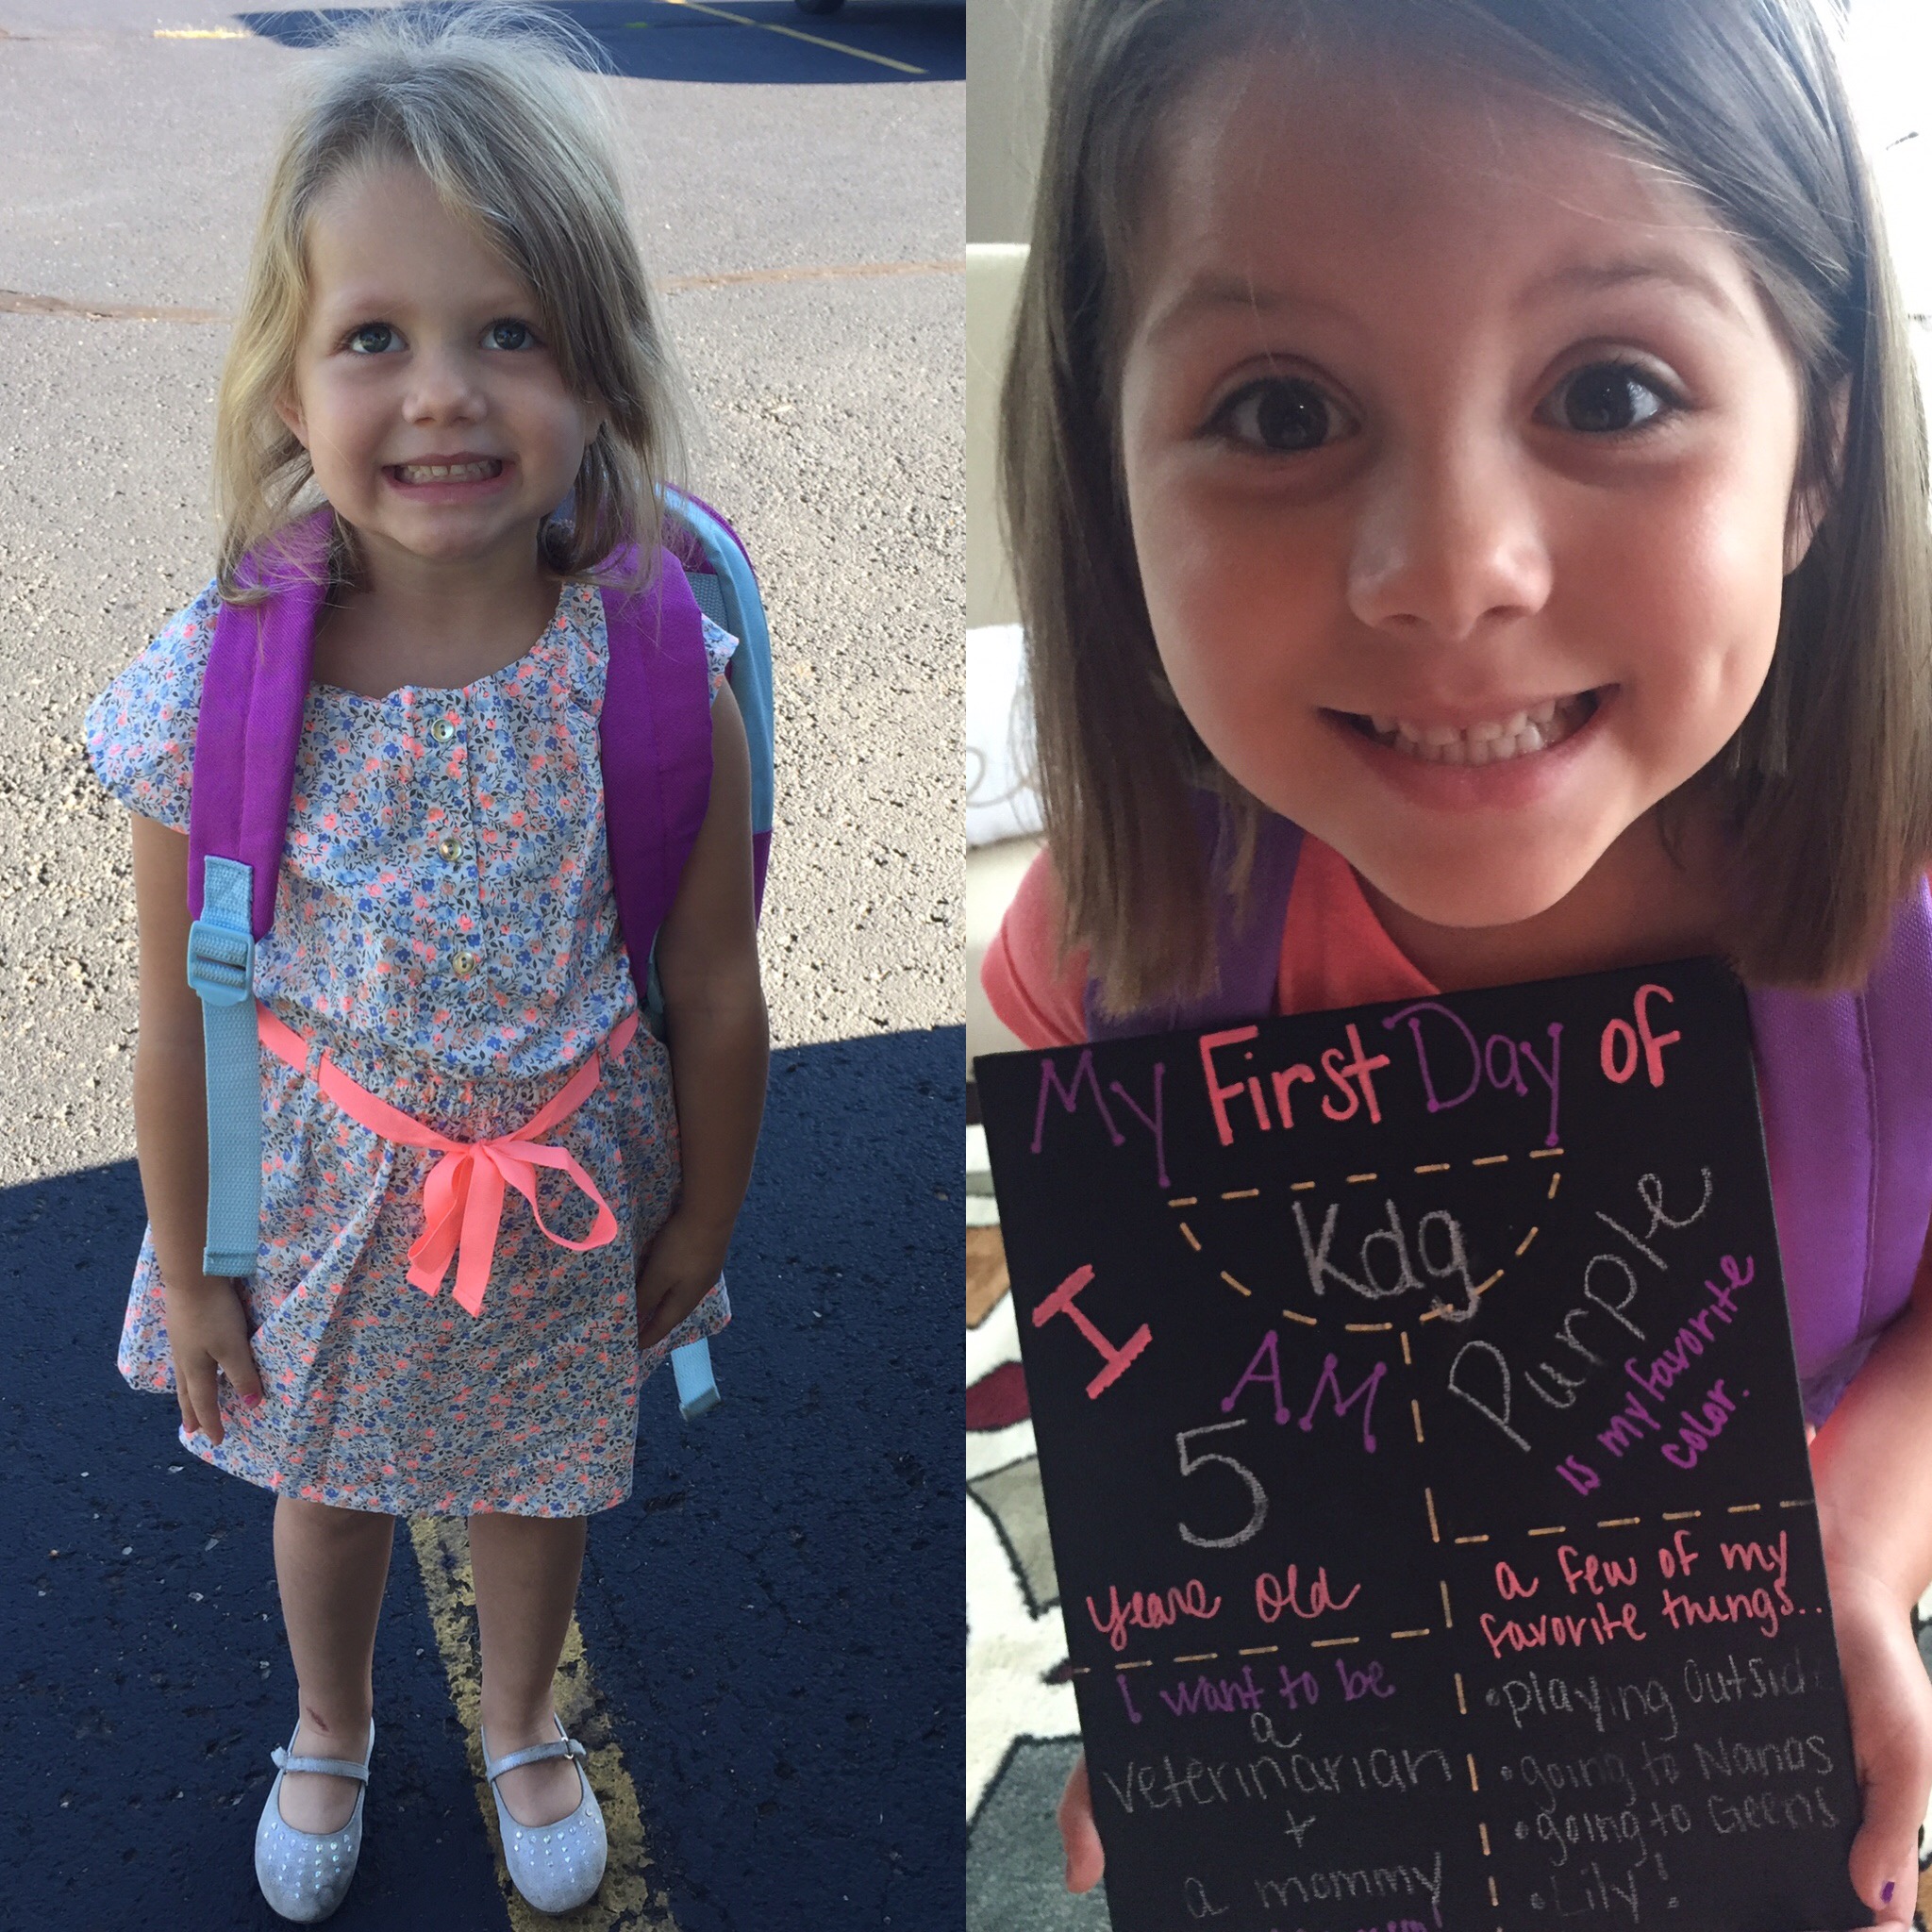 My First Day of
Kdg
I
AM
5
years old
Purple
is my favorite
color.
I want to be
a
veterinarian
+
a mommy
a few of my
favorite things..
• playing outside
• going to Nanas
• going to Geens
• Lily!